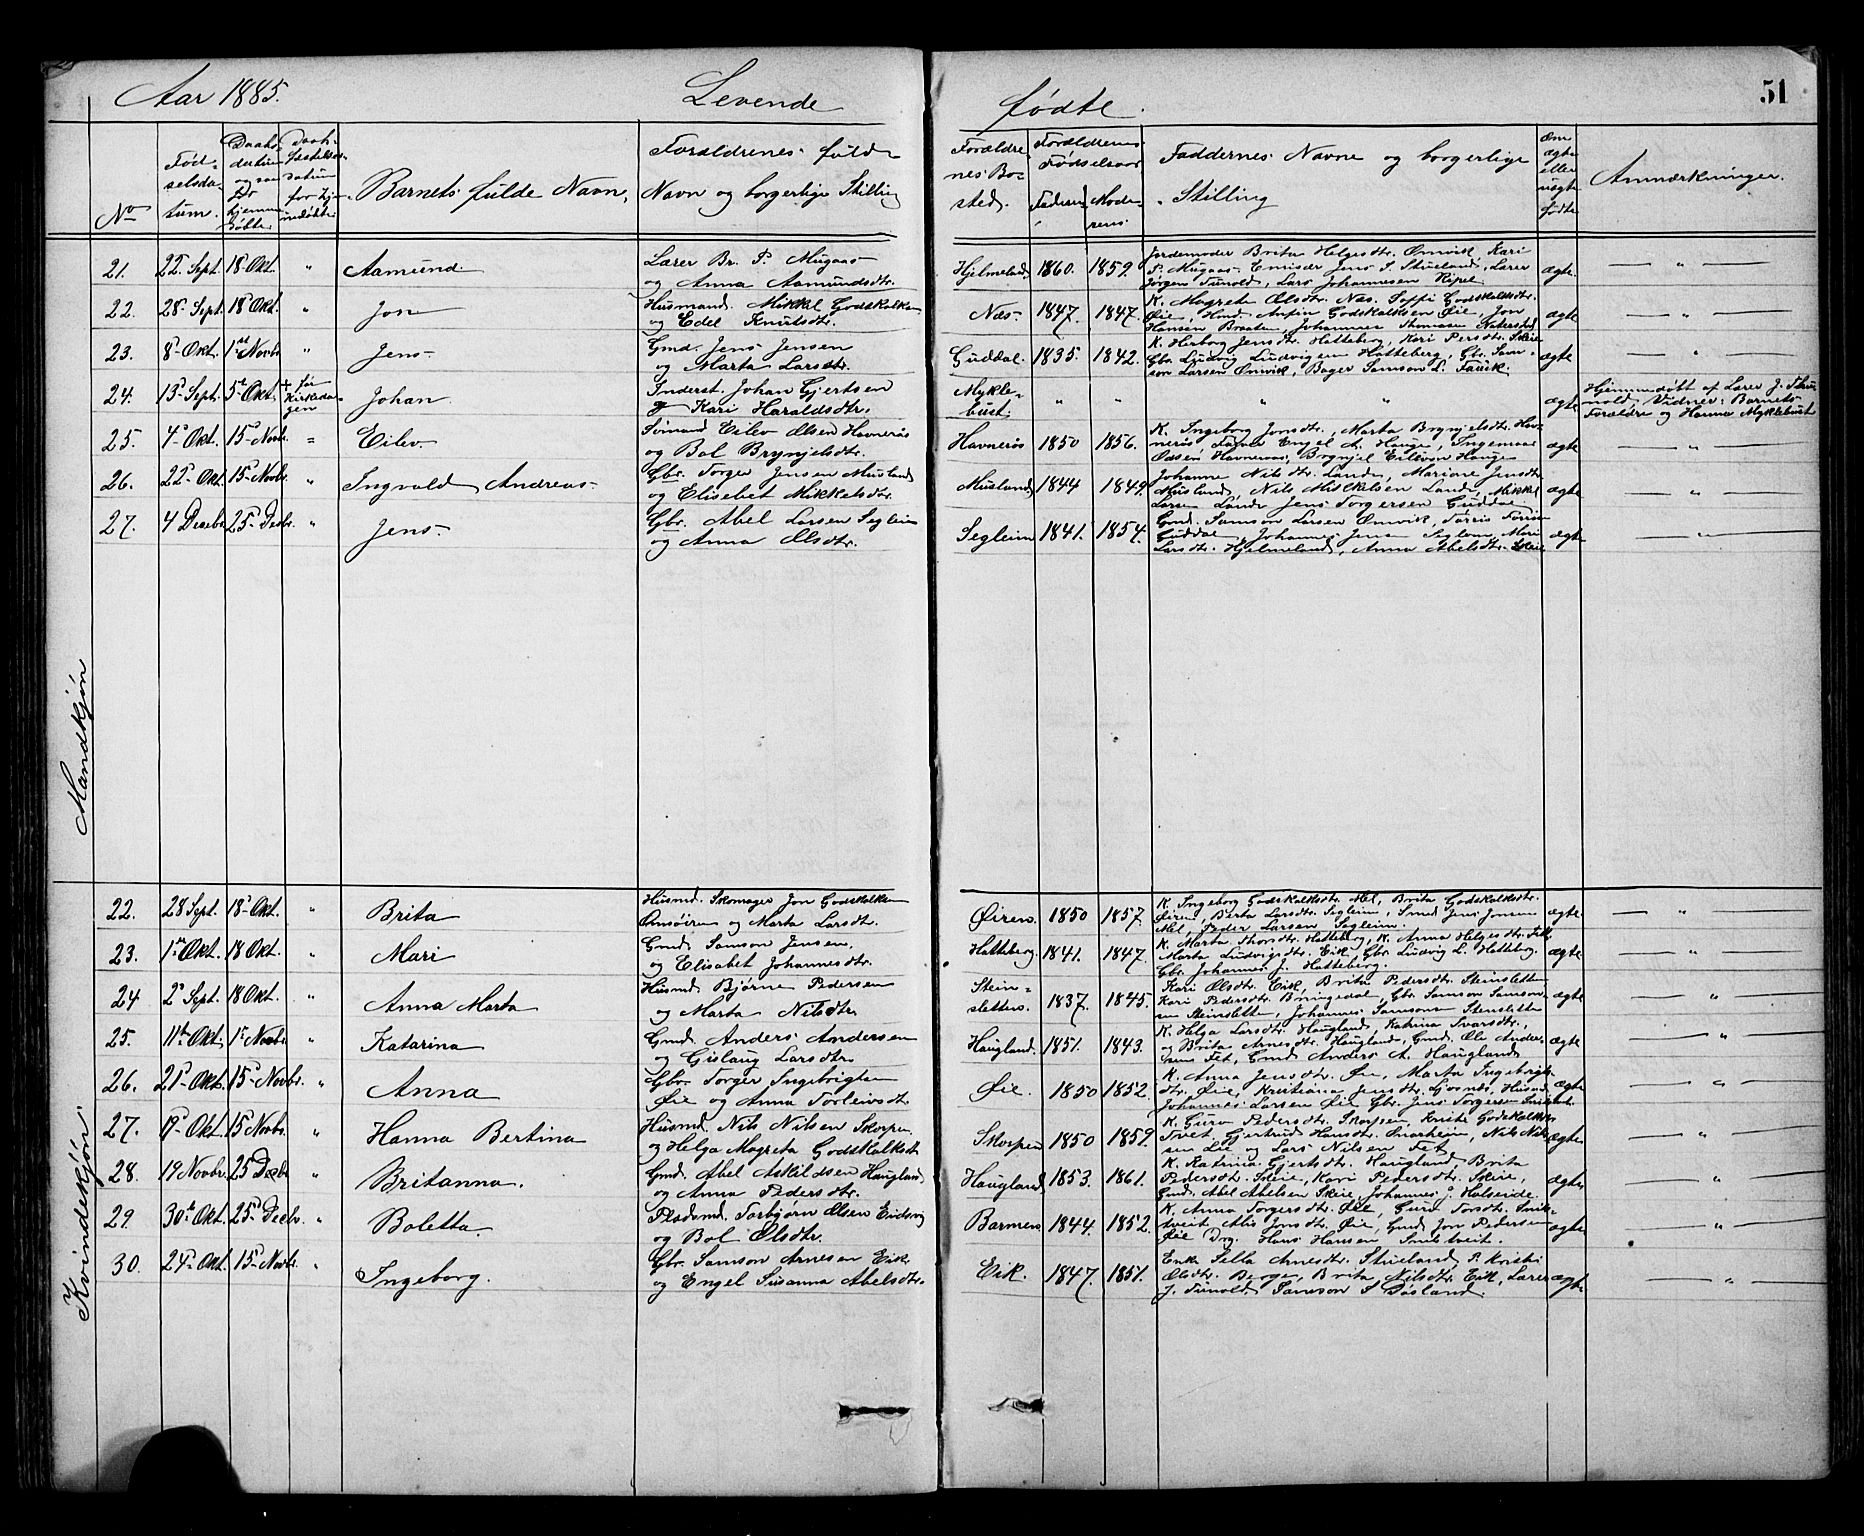 Aar 1885. Levende fødte. 51
No
Fødselsdatum.
Daabsdatum og saa for hjemmedøbte
Daabsstadfestelsesdatum for hjemmedøbte
Barnets fulde Navn.
Forældrenes fulde Navn og borgerlige Stilling
Forældrenes Bosted.
Forældrenes Fødselsaar
Faderens Moderens
Faddernes Navne og borgerlige Stilling
Om ægte eller uægte fødte
Anmærkninger.
Mandkjøn
21. 22. Sept. 18. Okt. " Aamund
Lærer Br. P. Mugaas
og Anna Aamundsdtr.
Hjelmeland 1860. 1859.
Jordemoder Brita Helgesdtr. Omvik, Kari
P. Mugaas, Emissær Jens S. Stueland, Lærer
Jørgen Tunold, Lars Johannesen Ripel
ægte "
22. 28. Sept. 18. Okt. " Jon
Husmand. Mikkel Godskalksen
og Edel Knutsdtr.
Næs. 1847. 1847.
K. Magrete Olsdtr. Næs. Soffi Godskalksdtr.
Øie, Hmd. Anfin Godskalksen Øie, Jon
Hansen Braaten, Johannes Thomasen Naterstad
ægte "
23. 8. Okt. 1ste Novbr. " Jens
Gmd. Jens Jensen
og Marta Larsdtr.
Guddal. 1835. 1842.
K. Herborg Jensdtr. Hatteberg, Kari Persdtr. Skeie
Gbr. Ludvig Ludvigsen Hatteberg, Gbr. Samson
Larsen Omvik, Bager Samson L.
ægte "
24. 13. Sept. 5te Okt. + før Kirkedagen Johan.
Inderst. Johan Gjertsen
og Kari Haraldsdtr.
Myklebust. " " " "
ægte
Hjemmedøbt af Lærer J. Thunold, Vidner: Barnets
Forældre og Hanna Myklebust
25. 4. Okt. 15. Novbr. " Eilev
Sømand Eilev Olsen Havnerøs
og Bol Brynjelsdtr.
Havnerøs 1850 1856.
K. Ingeborg Jonsdtr., Marta Brynjelsdtr. Havnerøs
Engel A. Hauge, Ingemar
Odsen Havneraas, Brynjel Eilevsen Hauge
ægte "
26. 22. Okt. 15. Novbr. " Ingvald Andreas
Gbr. Torger Jensen Musland
og Elisebet Mikkelsdtr.
Musland 1844 1849.
Johanne Nilsdtr. Lande, Mariane Jensdtr.
Musland, Nils Mikkelsen Lande, Mikkel
Larsen Lande Jens Torgersen Guddal
ægte "
27. 4 Decbr. 25. Decbr. " Jens
Gbr. Abel Larsen Segleim
og Anna Olsdtr.
Segleim 1841. 1854.
Gmd. Samson Larsen Omvik, Torris
Guddal, Johannes Jensen Segleim, Mari
Larsdtr. Hjelmeland, Anna Abelsdtr. Skeie
ægte "
Kvindekjøn.
22. 28 Sept. 18. Okt. " Brita
Husmd. Skomager Jon Godskalksen
Omsøiren og Marta Larsdtr.
Øiren. 1850 1857.
K. Ingeborg Godskalksdtr. Mel, Brita Godskalksdtr.
Øiren, Berta Larsdtr. Segleim, Smed Jens Jonsen
Mel, Peder Larsen Segleim.
ægte "
23. 1ste Okt. 18 Okt. " Mari
Gmd. Samson Jensen.
og Elisabet Johannesdtr.
Hatteberg. 1841. 1847.
K. Marta Thorsdtr. Hatteberg, K. Anna Helgesdtr. Fet,
Marta Ludvigsdtr. Eik, Gbr. Ludvig L. Hatteberg.
Gbr. Johannes J. Hatteberg.
ægte "
24 2. Sept. 18 Okt. " Anna Marta
Husmd. Bjørne Pedersen
og Marta Nilsdtr.
Steinsletten. 1837. 1845.
Kari Olsdtr. Eik, Brita Pedersdtr. Steinsletten
Kari Pedersdtr. Bringedal, Gbr. Samson Samsonsen
Steinsletten, Johannes Samsonsen Steinsletten
ægte "
25. 11te Okt. 1ste Novbr. " Katarina
Gmd. Anders Andersen
og Gislaug Larsdtr.
Haugland. 1851. 1843.
K. Helga Larsdtr. Haugland, Katrina Ivarsdtr.,
og Brita Arnesdtr. Haugland, Gmd. Ole Andersens
Fet, Gmd. Anders A. Haugland
ægte "
26. 21. Okt. 15. Novbr. " Anna
Gbr. Torger Ingebrigtsen
Øie og Anna Torleivsdtr.
Øie. 1850 1852.
K. Anna Jensdtr. Øie, Marta Ingebrigtsdtr.
Øie, Kristiana Jensdtr. Gjosnes, Husmd.
Johannes Larsen Øie Gbr. Jens Torgersen
ægte "
27. 19. Okt. 15 Novbr. " Hanna Bertina
Husmd. Nils Nilsen Skorpen
og Helga Magreta Godskalksdtr.
Skorpen 1850 1859.
K. Guro Pedersdtr. Skorpen, Kristi Godskalksdtr.
Tvet, Gjertrud Hansdtr. Snarheim, Nils Nilsen
Lie og Lars Nilsen Fet
ægte "
28. 19 Novbr. 25 Decbr. " Britanna.
Gmd. Abel Askildsen Haugland,
og Anna Pedersdtr.
Haugland 1853. 1861.
K. Katrina Gjertsdtr. Haugland, Brita
Pedersdtr. Skeie, Kari Pedersdtr. Skeie,
Gmd. Abel Abelsen Skeie, Johannes J. Halseide.
ægte "
29. 30te Okt. 25. Decbr. " Boletta.
Pladsmd. Torbjørn Olsen Eidsvig
og Bol Olsdtr.
Barmen 1844. 1852.
K. Anna Torgersdtr. Øie, Guro Torsdtr.
Alis Jonsdtr. Øie, Gmd. Jon Pedersen
Øie Drg. Hans Hansen
ægte "
30. 24. Okt. 15. Novbr. " Ingeborg.
Gbr. Samson Arnesen Eik.
og Engel Susanna Abelsdtr.
Eik. 1847. 1851.
Enk. Sella Arnesdtr. Stueland, P. Kristi
Olsdtr. Berge, Brita Nilsdtr. Eik, Lærer
J. Tunold, Samson S Døsland.
ægte "